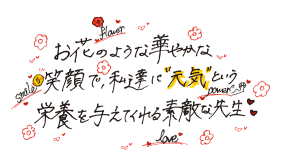 flower
お花のような華やかな
smile
笑顔で、私達に"元気"という
power
栄養を与えてくれる素敵な先生
love